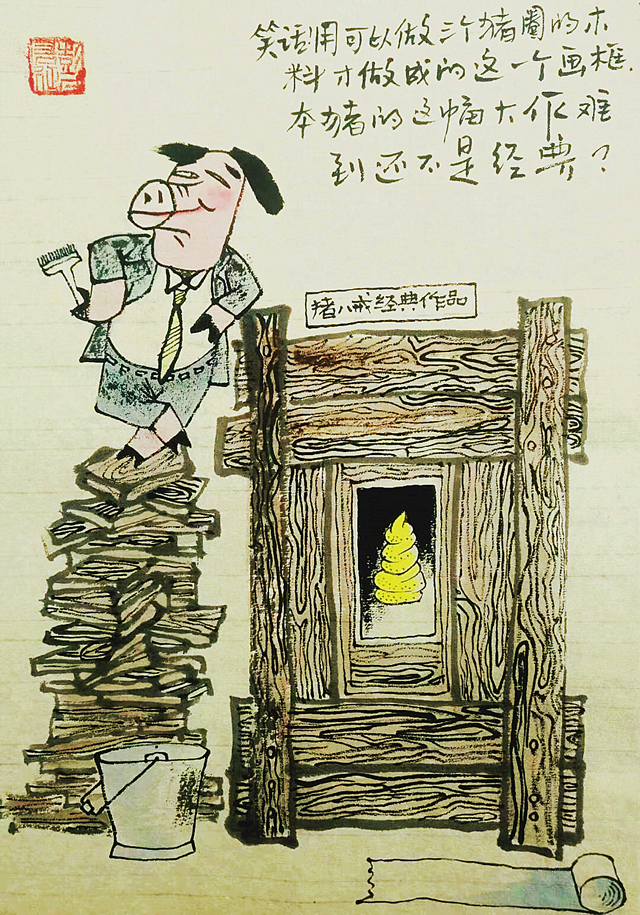 笑话!用可以做三个猪圈的木
料才做成的这一个画框,
本猪的这幅大作难
到还不是经典?
猪八戒经典作品